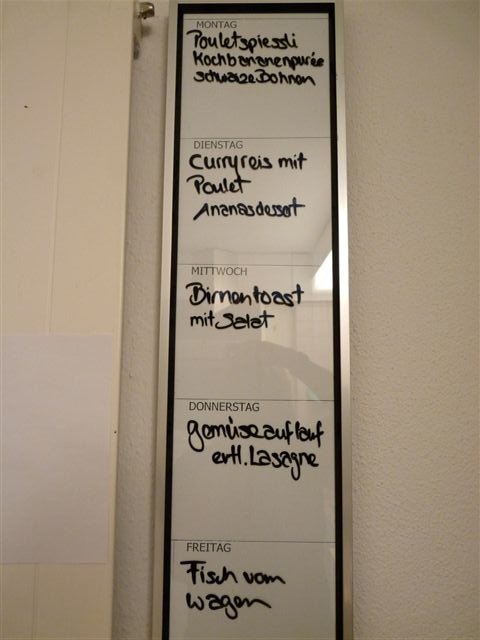 MONTAG
Pouletspiessli
Kochbananenpurée
schwarze Bohnen
DIENSTAG
Curryreis mit
Poulet
Ananasdessert
MITTWOCH
Birnentoast
mit Salat
DONNERSTAG
Gemüseauflauf
evtl. Lasagne
FREITAG
Fisch vom
wagen